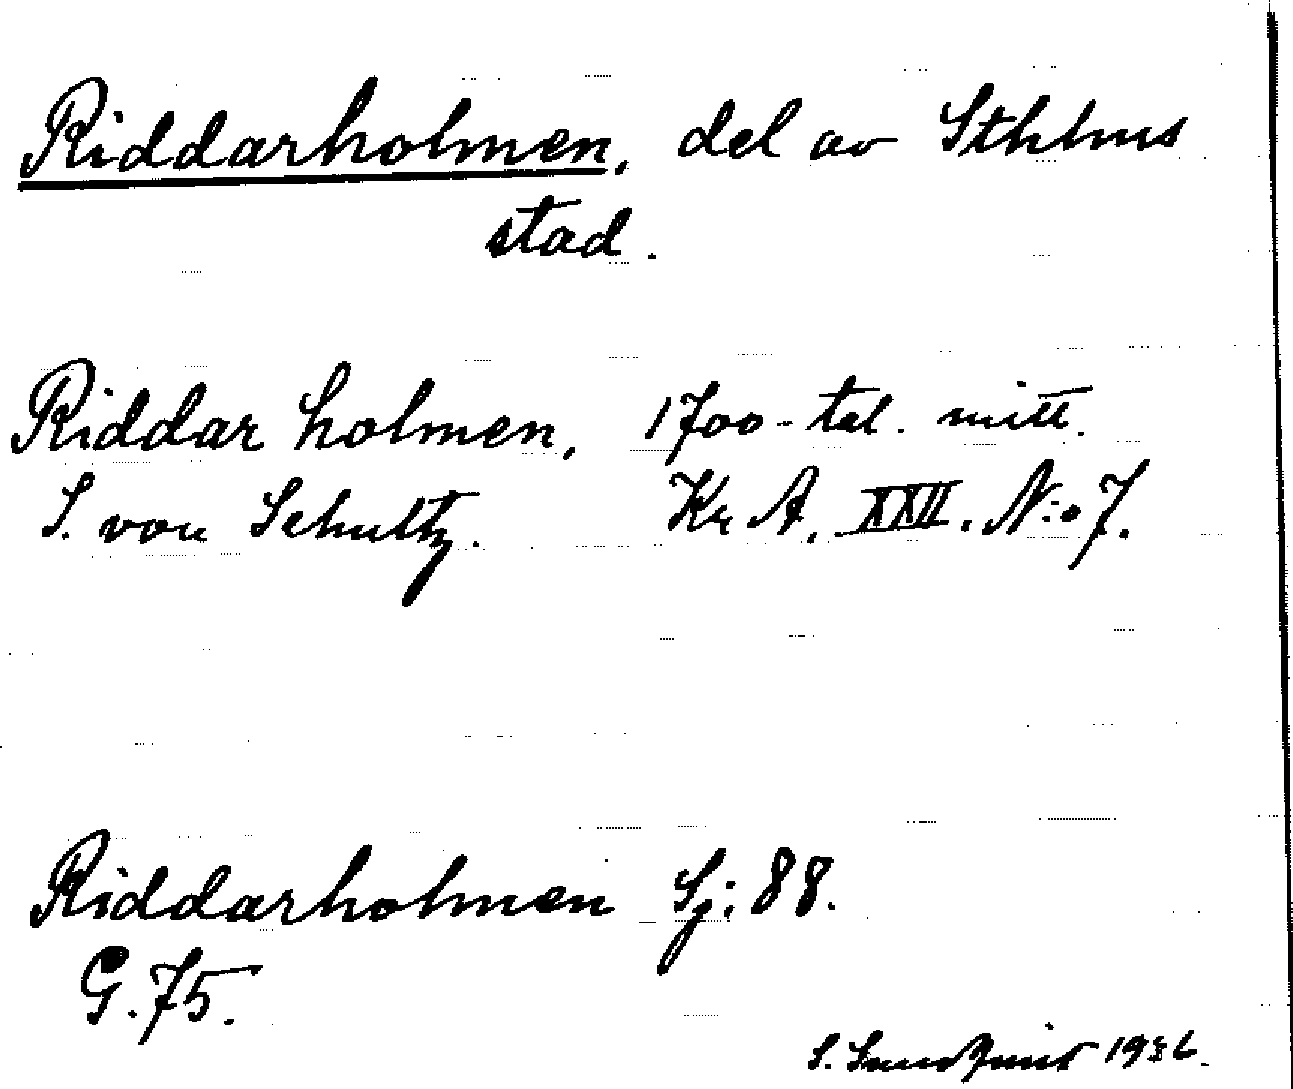 Riddarholmen, del av Sthlms
stad.
Riddar holmen, 1700-tal. mitt.
S. von Schultz. Kr A. XXII. N:o 7.
Riddarholmen Sj: 88.
G. 75.
S. 1936.